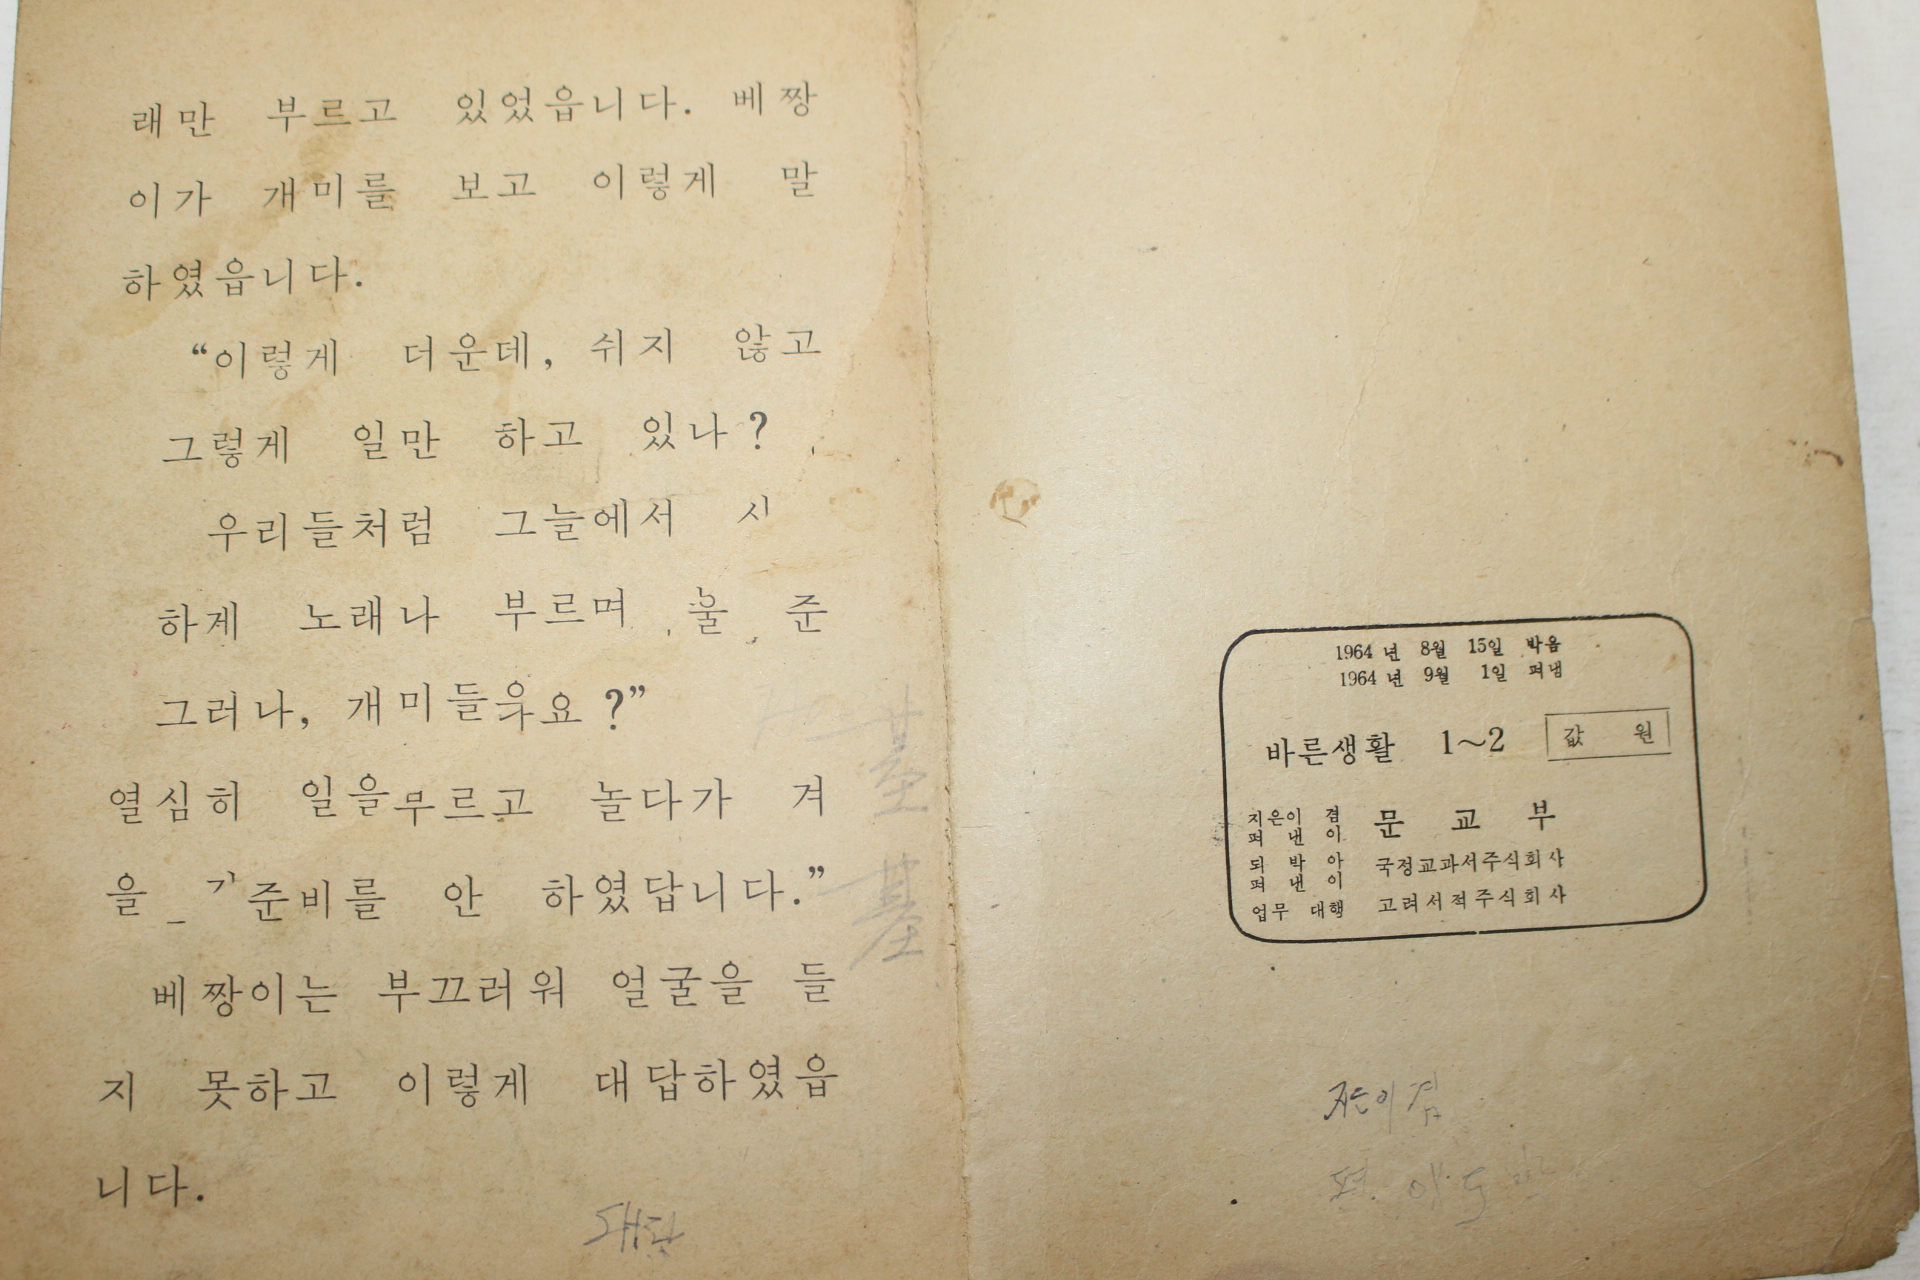 래만 부르고 있었읍니다. 베짱
이가 개미를 보고 이렇게 말
하였읍니다.
“이렇게 더운데, 쉬지 않고
그렇게 일만 하고 있나?
우리들처럼 그늘에서
하게 노래나 부르며 준
그러나, 개미들 요?”
열심히 일을 르고 놀다가 겨
을 준비를 안 하였답니다.”
베짱이는 부끄러워 얼굴을 들
지 못하고 이렇게 대답하였읍
니다.
대답
1964년 8월 15일 박음
1964년 9월 1일 펴냄
바른생활 1~2 값 원
지은이 겸
펴 낸 이 문 교 부
되 박 아
펴 낸 이 국정교과서주식회사
업무 대행 고려서적주식회사